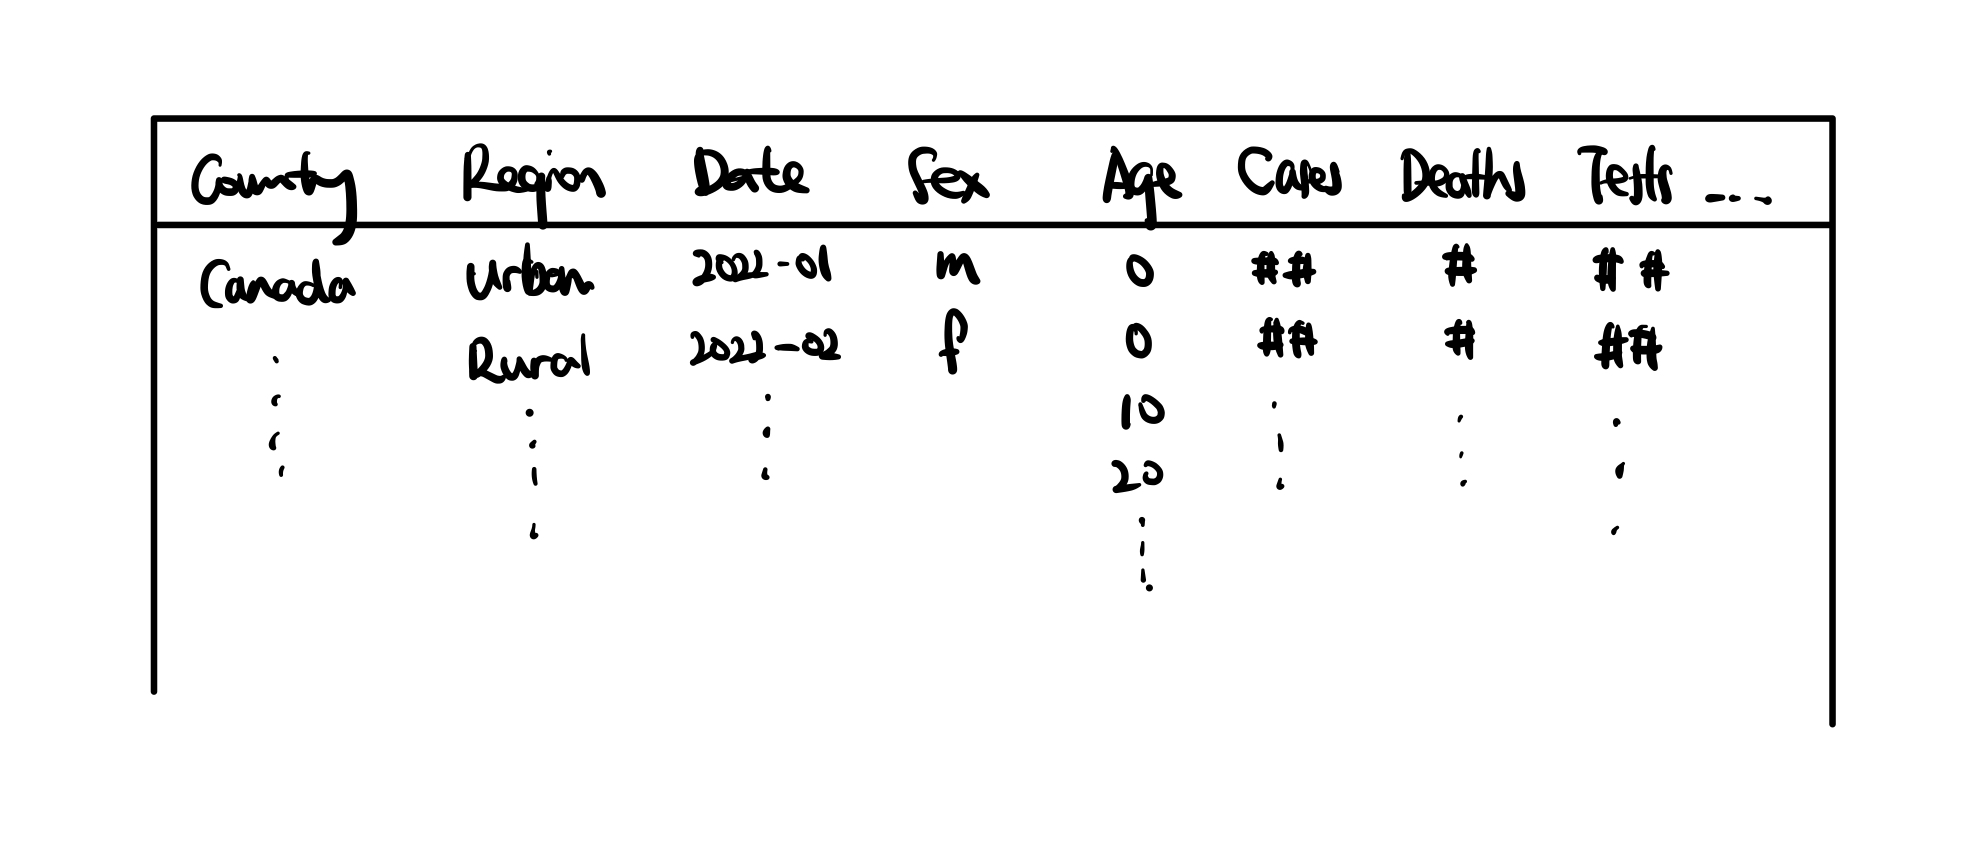 Country Region Date Sex Age Cases Deaths Tests ...
Canada Urban 2022-01 m 0 ## # ##
Rural 2022-02 f 0 ## # ##
10
20